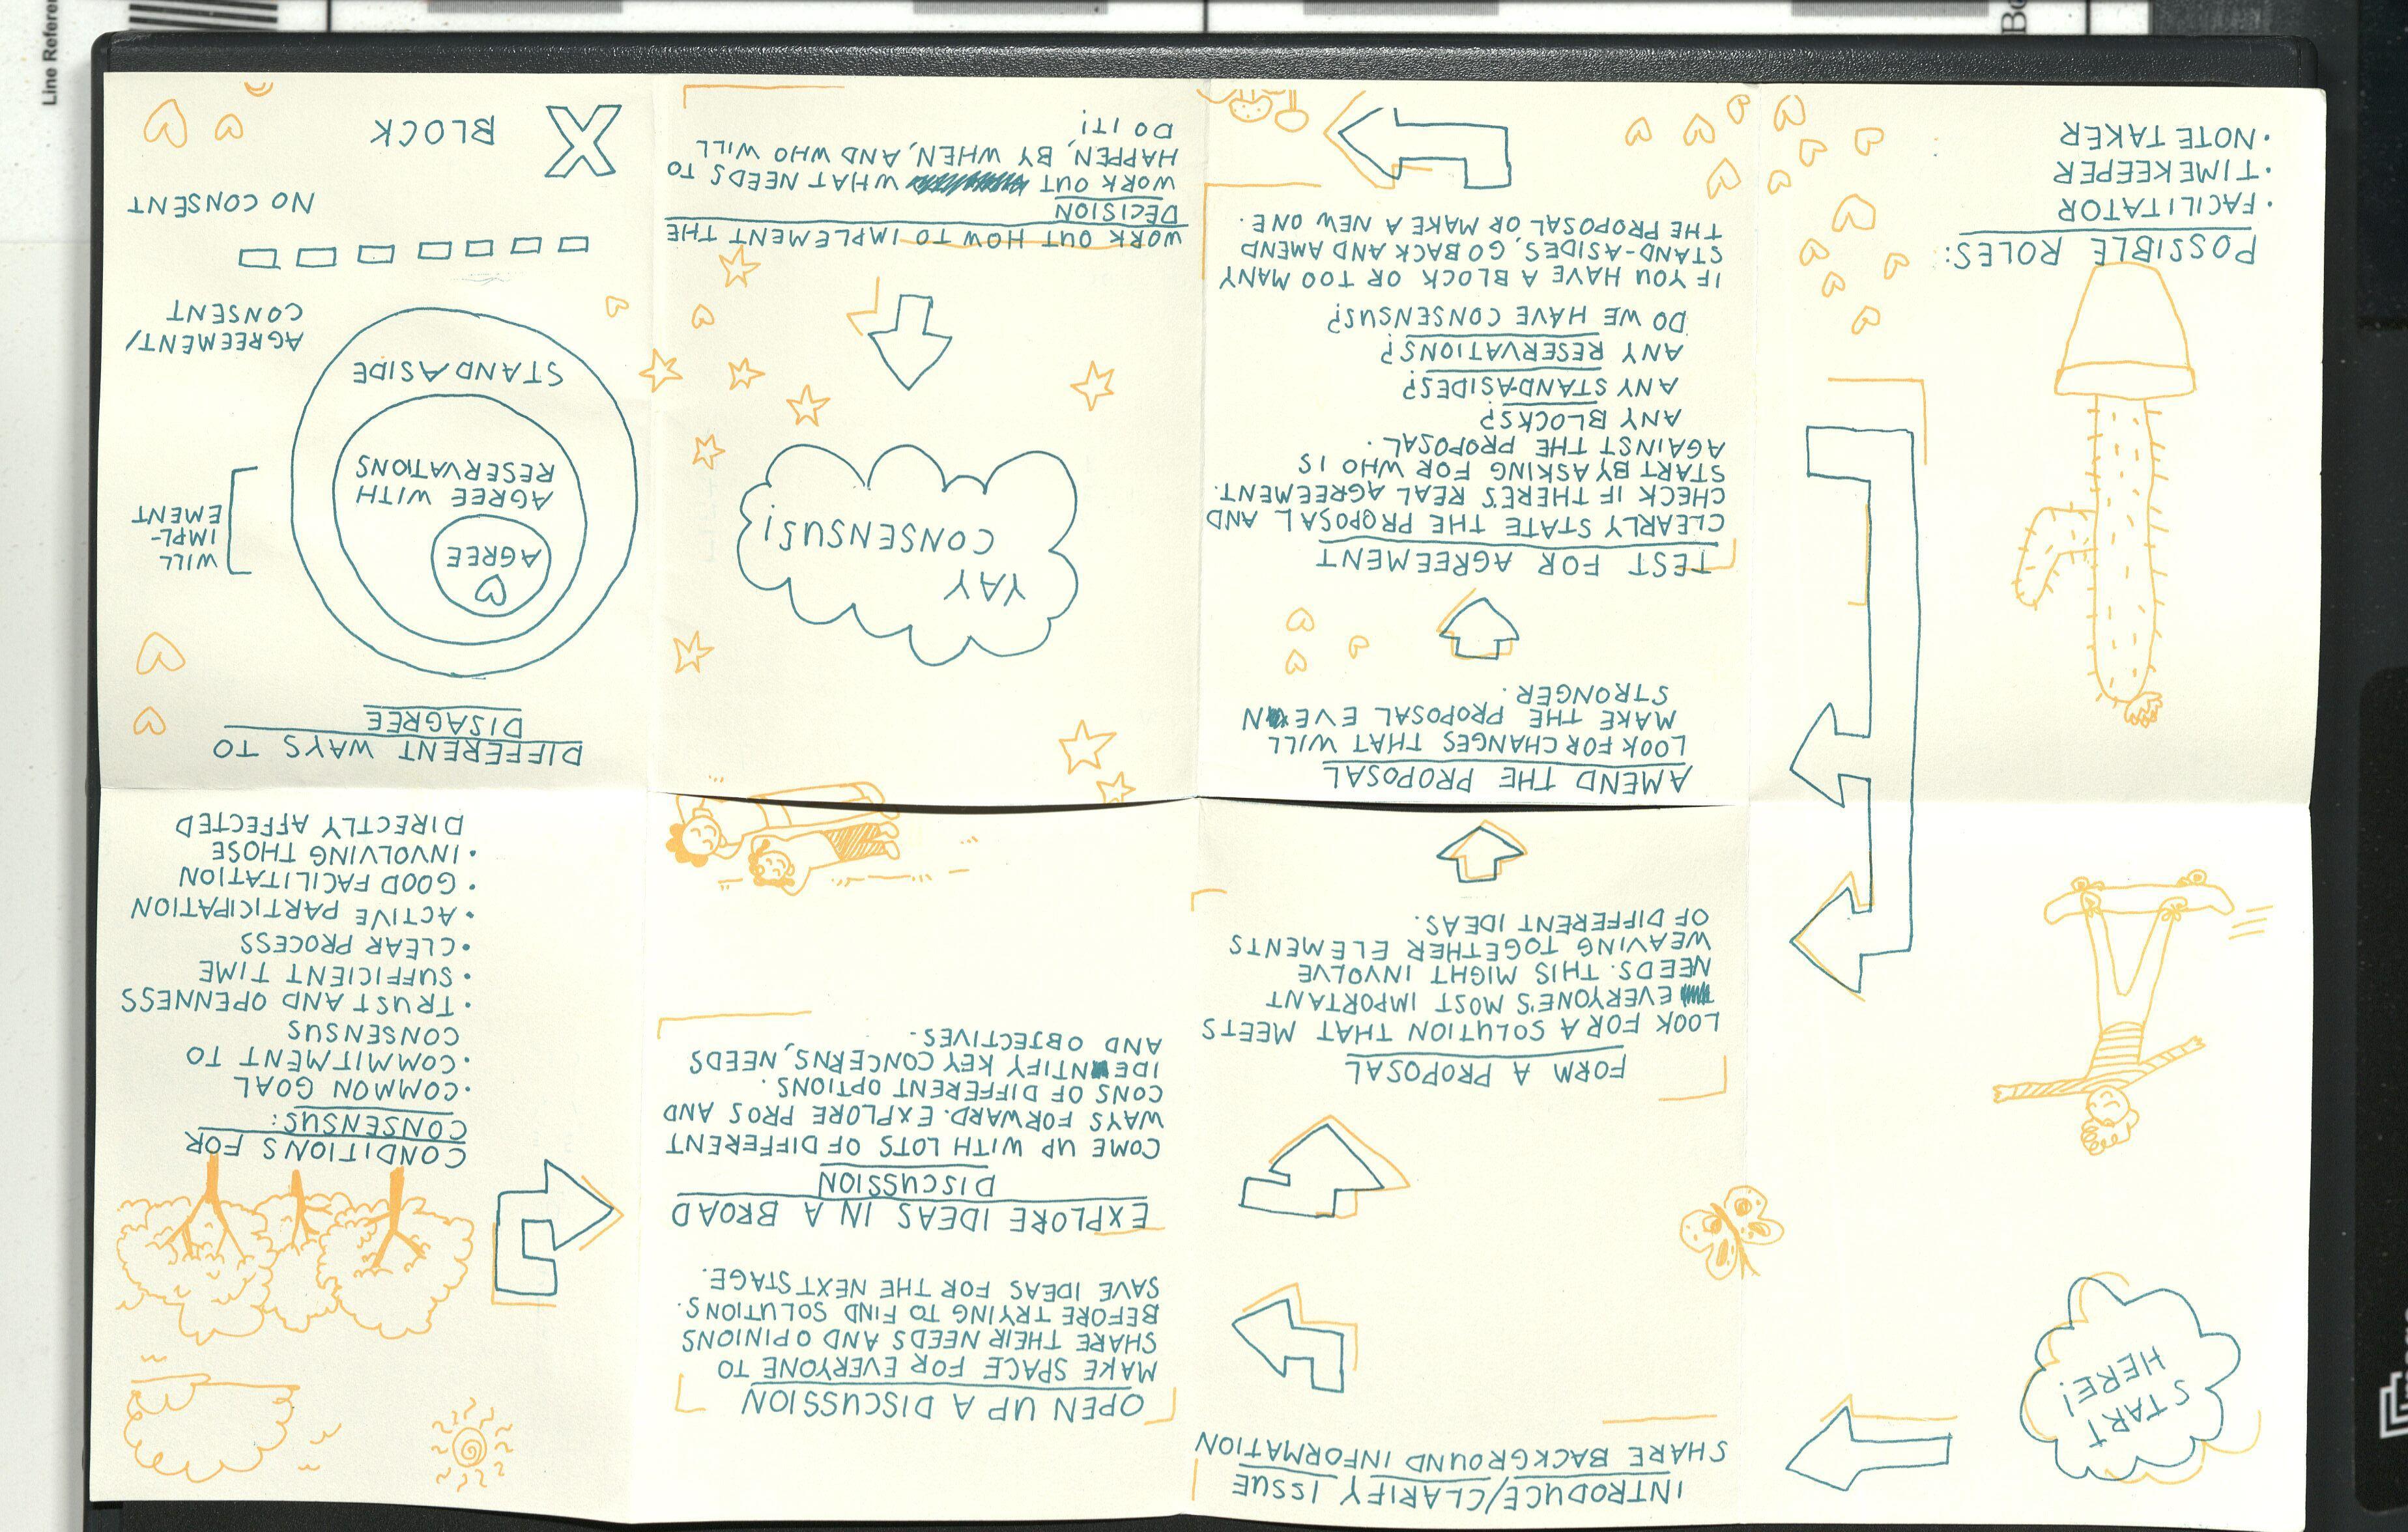 START
HERE!
INTRODUCE/CLARIFY ISSUE
SHARE BACKGROUND INFORMATION
OPEN UP A DISCUSSION
MAKE SPACE FOR EVERYONE TO
SHARE THEIR NEEDS AND OPINIONS
BEFORE TRYING TO FIND SOLUTIONS.
SAVE IDEAS FOR THE NEXT STAGE.
EXPLORE IDEAS IN A BROAD
DISCUSSION
COME UP WITH LOTS OF DIFFERENT
WAYS FORWARD. EXPLORE PROS AND
CONS OF DIFFERENT OPTIONS.
IDENTIFY KEY CONCERNS, NEEDS
AND OBJECTIVES.
FORM A PROPOSAL
LOOK FOR A SOLUTION THAT MEETS
EVERYONE'S MOST IMPORTANT
NEEDS. THIS MIGHT INVOLVE
WEAVING TOGETHER ELEMENTS
OF DIFFERENT IDEAS.
AMEND THE PROPOSAL
LOOK FOR CHANGES THAT WILL
MAKE THE PROPOSAL EVEN
STRONGER.
TEST FOR AGREEMENT
CLEARLY STATE THE PROPOSAL AND
CHECK IF THERE'S REAL AGREEMENT.
START BY ASKING FOR WHO IS
AGAINST THE PROPOSAL.
ANY BLOCKS?
ANY STAND-ASIDES?
ANY RESERVATIONS?
DO WE HAVE CONSENSUS?
IF YOU HAVE A BLOCK OR TOO MANY
STAND-ASIDES, GO BACK AND AMEND
THE PROPOSAL OR MAKE A NEW ONE.
YAY
CONSENSUS!
WORK OUT HOW TO IMPLEMENT THE
DECISION
WORK OUT WHAT NEEDS TO
HAPPEN, BY WHEN, AND WHO WILL
DO IT!
CONDITIONS FOR
CONSENSUS:
• COMMON GOAL
• COMMITMENT TO
CONSENSUS
• TRUST AND OPENNESS
• SUFFICIENT TIME
• CLEAR PROCESS
• ACTIVE PARTICIPATION
• GOOD FACILITATION
• INVOLVING THOSE
DIRECTLY AFFECTED
DIFFERENT WAYS TO
DISAGREE
AGREE
AGREE WITH
RESERVATIONS
STAND ASIDE
WILL
IMPL-
EMENT
AGREEMENT/
CONSENT
NO CONSENT
X BLOCK
POSSIBLE ROLES:
• FACILITATOR
• TIMEKEEPER
• NOTE TAKER
Line Refere
Bo